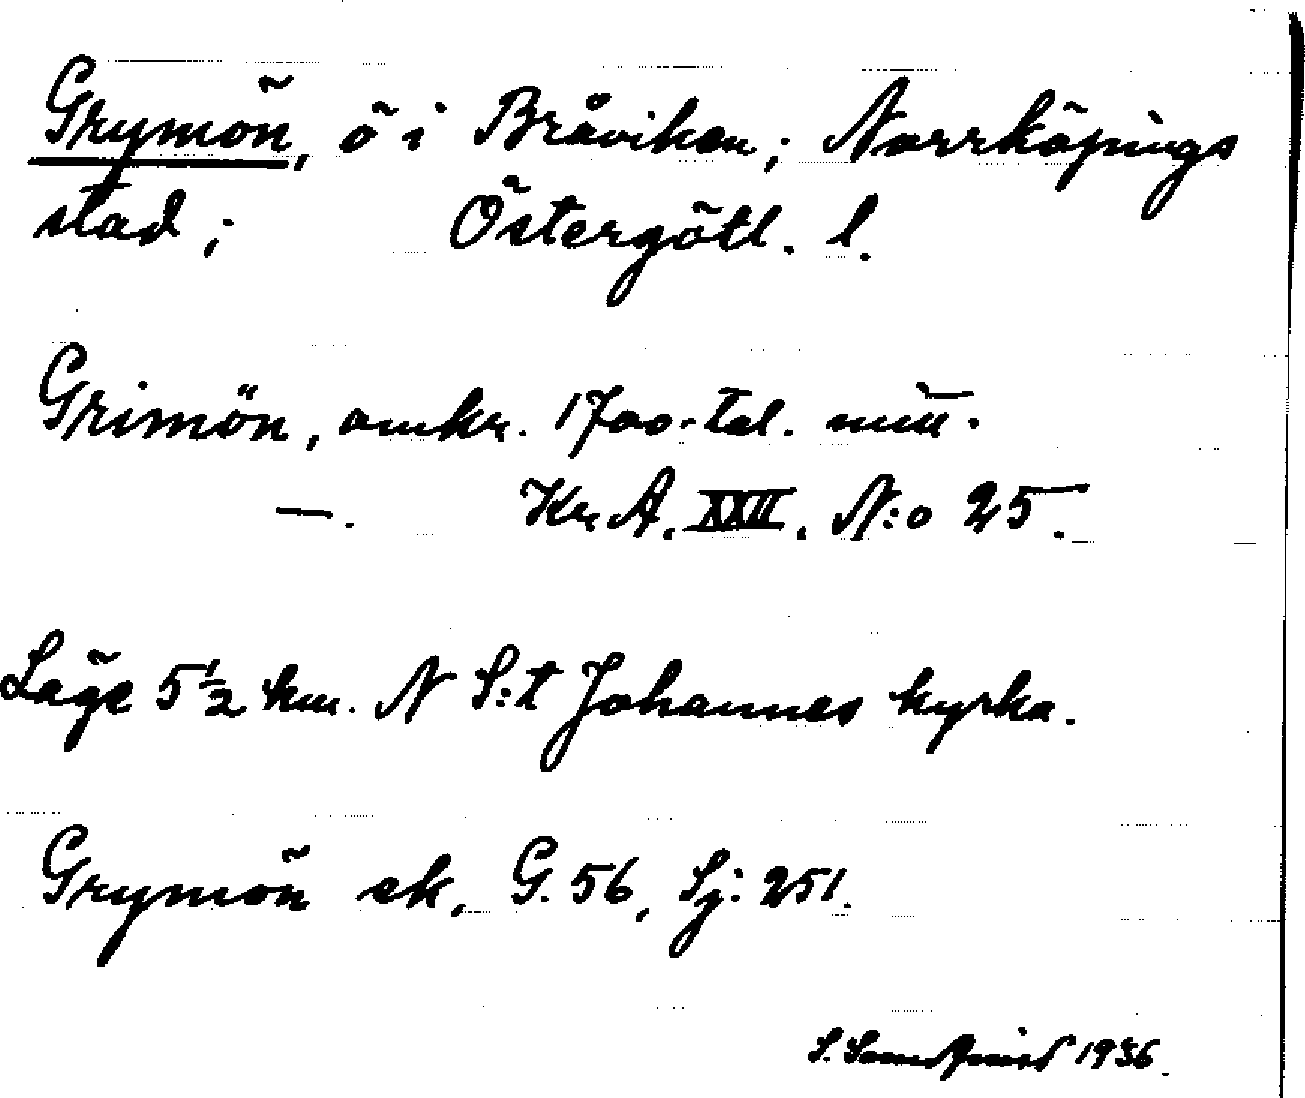 Grymön, ö i Bråviken; Norrköpings
stad; Östergötl. l.
Grimön, omkr. 1700-tal.
—. Kr. A. XXII. N:o 25.
Läge 5 1/2 km. N S:t Johannes kyrka.
Grymön ek. G. 56, Sj: 251.
S. 1936.